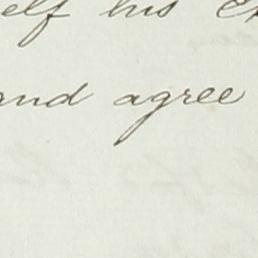 elf his
and agree